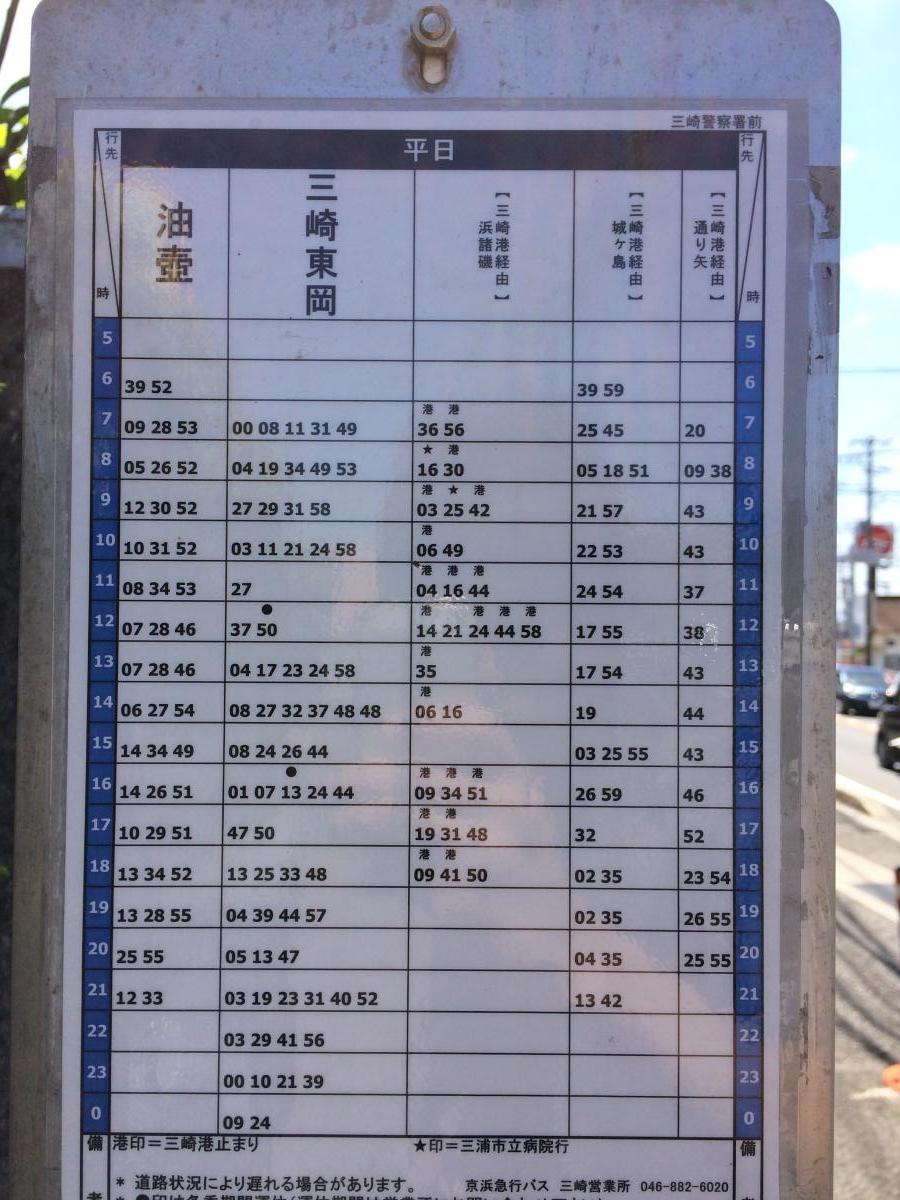 三崎警察署前
行先 平日 行先
時 油壺 三崎東岡 【三崎港経由】浜諸磯 【三崎港経由】城ヶ島 【三崎港経由】通り矢 時
5 5
6 39 52 39 59 6
港 港
7 09 28 53 00 08 11 31 49 36 56 25 45 20 7
★ 港
8 05 26 52 04 19 34 49 53 16 30 05 18 51 09 38 8
港 ★ 港
9 12 30 52 27 29 31 58 03 25 42 21 57 43 9
港
10 10 31 52 03 11 21 24 58 06 49 22 53 43 10
港 港 港
11 08 34 53 27 04 16 44 24 54 37 11
● 港 港 港 港
12 07 28 46 37 50 14 21 24 44 58 17 55 38 12
港
13 07 28 46 04 17 23 24 58 35 17 54 43 13
港
14 06 27 54 08 27 32 37 48 48 06 16 19 44 14
15 14 34 49 08 24 26 44 03 25 55 43 15
● 港 港 港
16 14 26 51 01 07 13 24 44 09 34 51 26 59 46 16
港 港
17 10 29 51 47 50 19 31 48 32 52 17
港 港
18 13 34 52 13 25 33 48 09 41 50 02 35 23 54 18
19 13 28 55 04 39 44 57 02 35 26 55 19
20 25 55 05 13 47 04 35 25 55 20
21 12 33 03 19 23 31 40 52 13 42 21
22 03 29 41 56 22
23 00 10 21 39 23
0 09 24 0
備 港印＝三崎港止まり ★印＝三浦市立病院行 備
* 道路状況により遅れる場合があります。 京浜急行バス 三崎営業所 046-882-6020